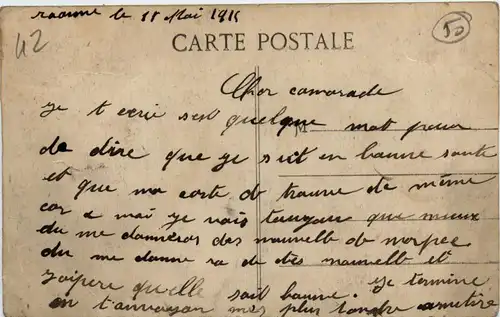 raonne le 18 Mai 1915
42
50
CARTE POSTALE
Cher camarade
je t ecrie ses quelque mot pour
de dire que je suit en bonne sante
et que ma carte de trouve de même
car a moi je vais toujour que mieux
du me donneras des nouvelle de
du me donne ra de tes nouvelle et
j'aipere quelle soit bonne. je termine
en t'anvoyon mes plus tendre